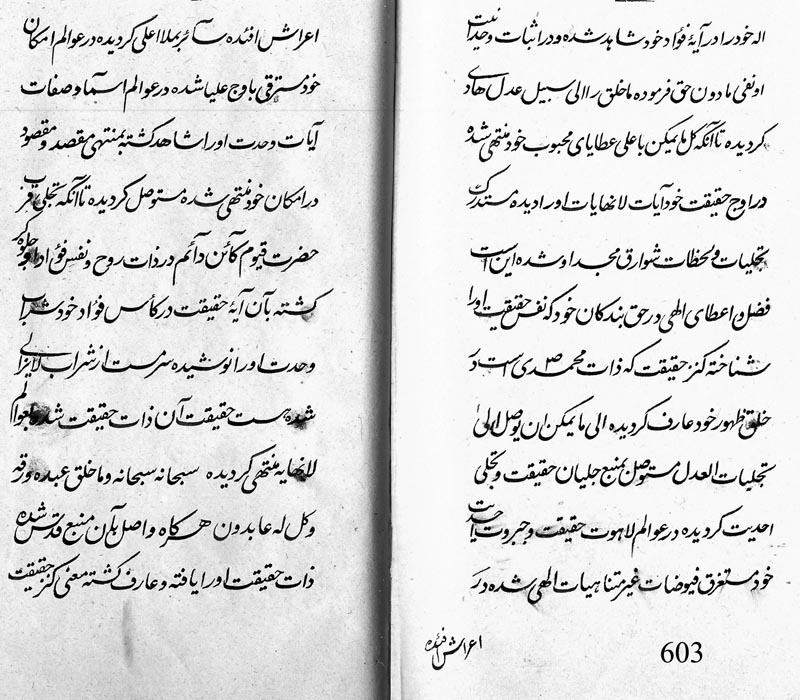 اله خود را در آیهٔ فؤاد خود شاهد شده و در اثبات وحدانیت
او نفی مادون حق فرموده ما خلق را الی سبیل عدل هادی
کردیده تا آنکه کل ما یمکن باعلی عطایای محبوب خود منتهی شده
در اوج حقیقت خود آیات لانهایات او را دیده مستدرک
تجلیات و لحظات شوارق مجد او شده این است
فضل و اعطای الهی در حق بندکان خود که نفس حقیقت او را
شناخته کنز حقیقت که ذات محمدی ص است در
خلق ظهور خود عارف کردیده الی ما یمکن ان یوصل الی
تجلیات العدل مستوصل بمنبع جلیان حقیقت و تجلی
احدیت کردیده در عوالم لاهوت حقیقت و جبروت احدیت
خود مستغرق فیوضات غیر متناهیات الهی شده در
اعراش افئده
603
اعراش افئده سائر بملاء اعلی کردیده در عوالم امکان
خود مترقی باوج علیا شده در عوالم اسماء و صفات
آیات وحدت او را شاهد کشته بمنتهی مقصد و مقصود
در امکان خود منتهی شده مستوصل کردیده تا آنکه تجلی
حضرت قیوم کائن دائم در ذات روح و نفس فؤاد او جلوه کر
کشته بآن آیهٔ حقیقت در کأس فؤاد خود شراب
وحدت او را نوشیده سرمست از شراب لایزالی
شده است حقیقت آن ذات حقیقت شده بعوالم
لانهایه منتهی کردیده سبحانه سبحانه و ما خلق عبده ورقه
و کل له عابدون هرکاه واصل بآن منبع قدس شده
ذات حقیقت او را یافته و عارف کشته معنی کنز حقیقت